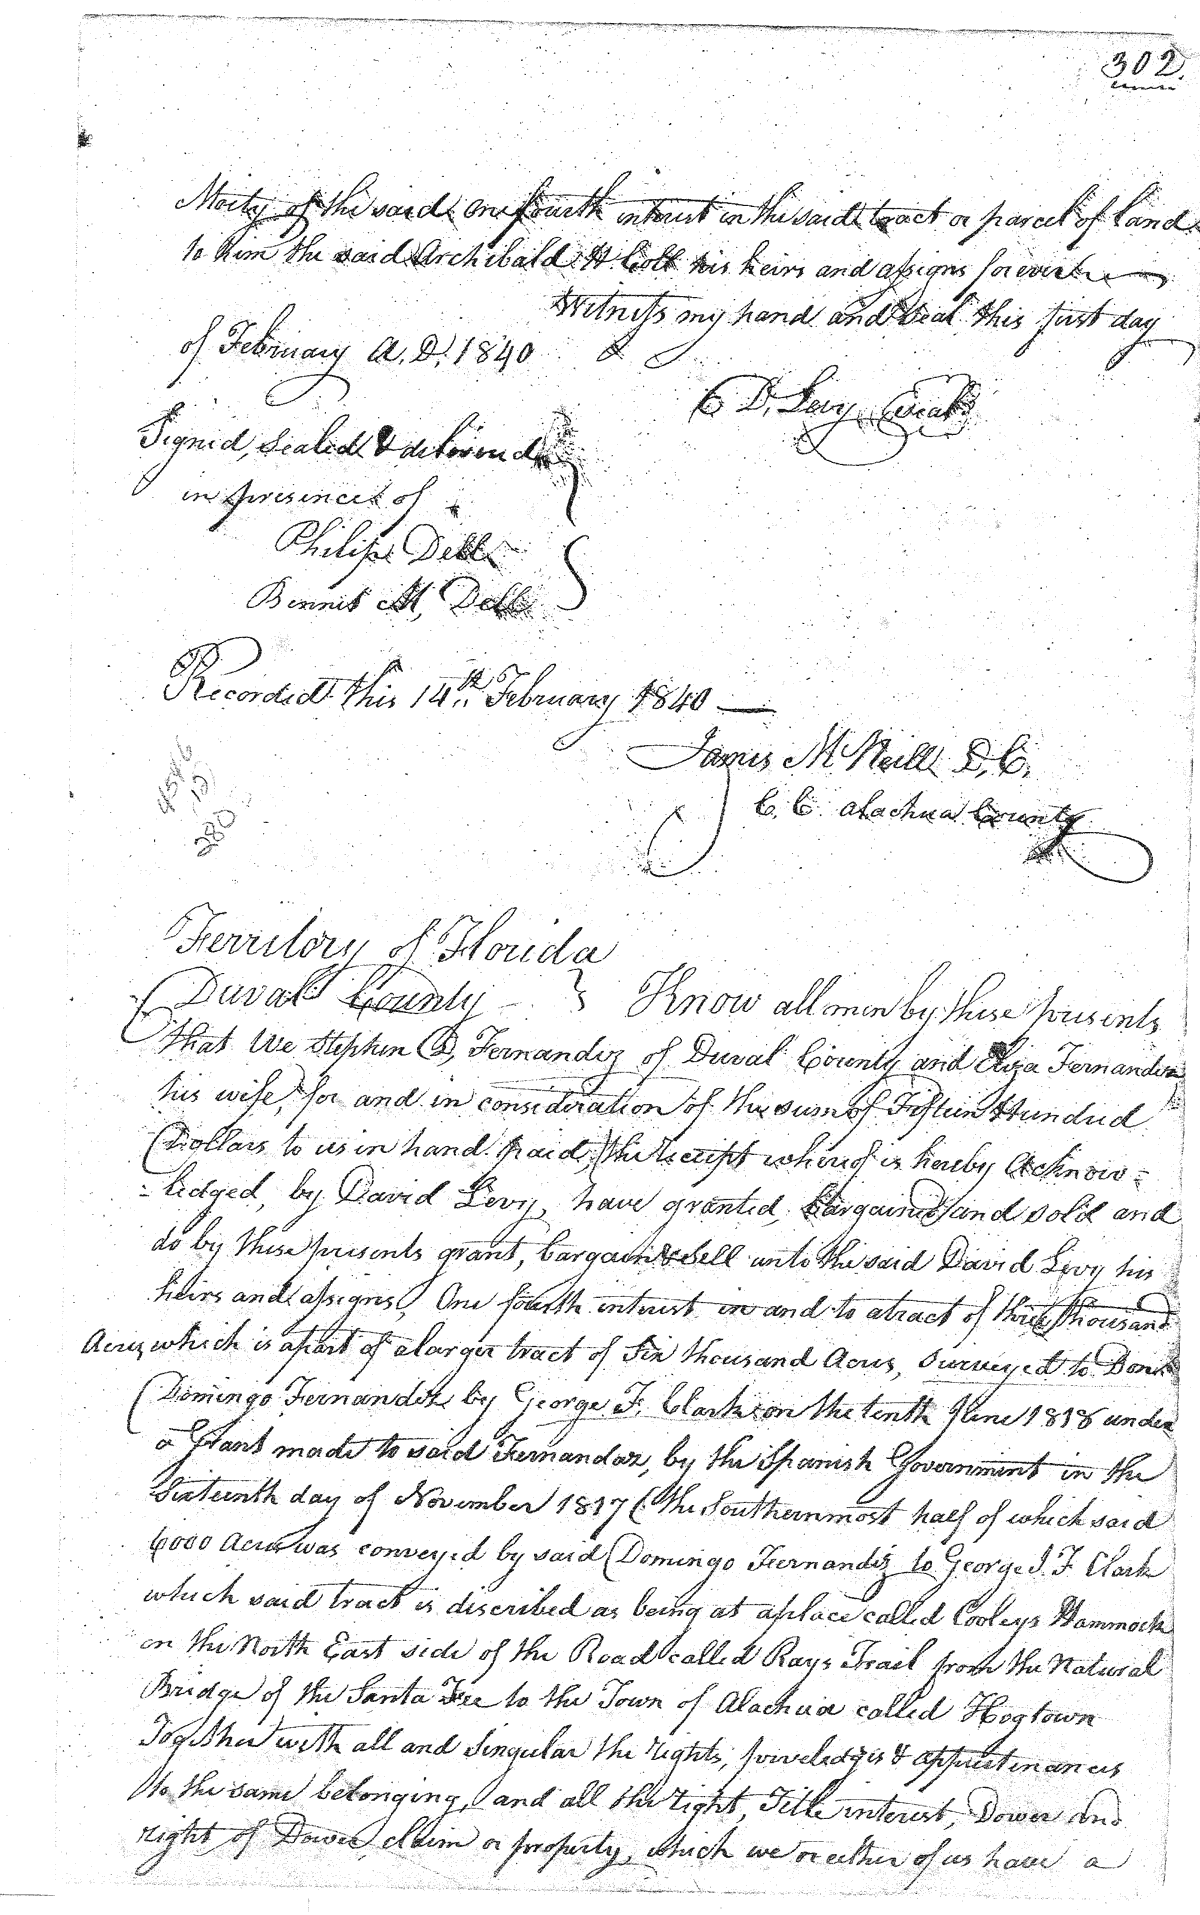 302.
Moity of the said One fourth interest in the said tract or parcel of Land
to him the said Archibald H Cole his heirs and assigns forever
Witness my hand and Seal this first day
of February A. D. 1840
C D. Levy (Seal)
Signed, Sealed & delivered
in presence of
Philip Dell
Bennet M, Dell
Recorded this 14th February 1840
James McNeill D. C.
C. C. Alachua County
Territory of Florida
Duval County } Know all men by these presents
that We Stephen D, Fernandez of Duval County and Eliza Fernandez
his wife, for and in consideration of the sum of Fifteen Hundred
Dollars to us in hand paid, the receipt whereof is hereby Acknow=
=ledged, by David Levy, have granted, bargained and sold and
do by these presents grant, bargain & Sell unto the said David Levy his
heirs and assigns, One fourth interest in and to a tract of three thousand
Acres which is apart of a larger tract of Six thousand Acres, Surveyed to Don
Domingo Fernandez by George F. Clark on the tenth June 1818 under
a Grant made to said Fernandaz, by the Spanish Government in the
Sixteenth day of November 1817 (the Southernmost half of which said
6000 Acres was conveyed by said Domingo Fernandiz to George I. F. Clark
which said tract is discribed as being at aplace called Cooleys Hammock
on the North East side of the Road called Rays Trail from the Natural
Bridge of the Santa Fee to the Town of Alachua called Hogtown
Together with all and Singular the rights, priveledges & appurtinances
to the same belonging, and all the right, Title interest, Dower and
right of Dower claim or property, which we or either of us have a